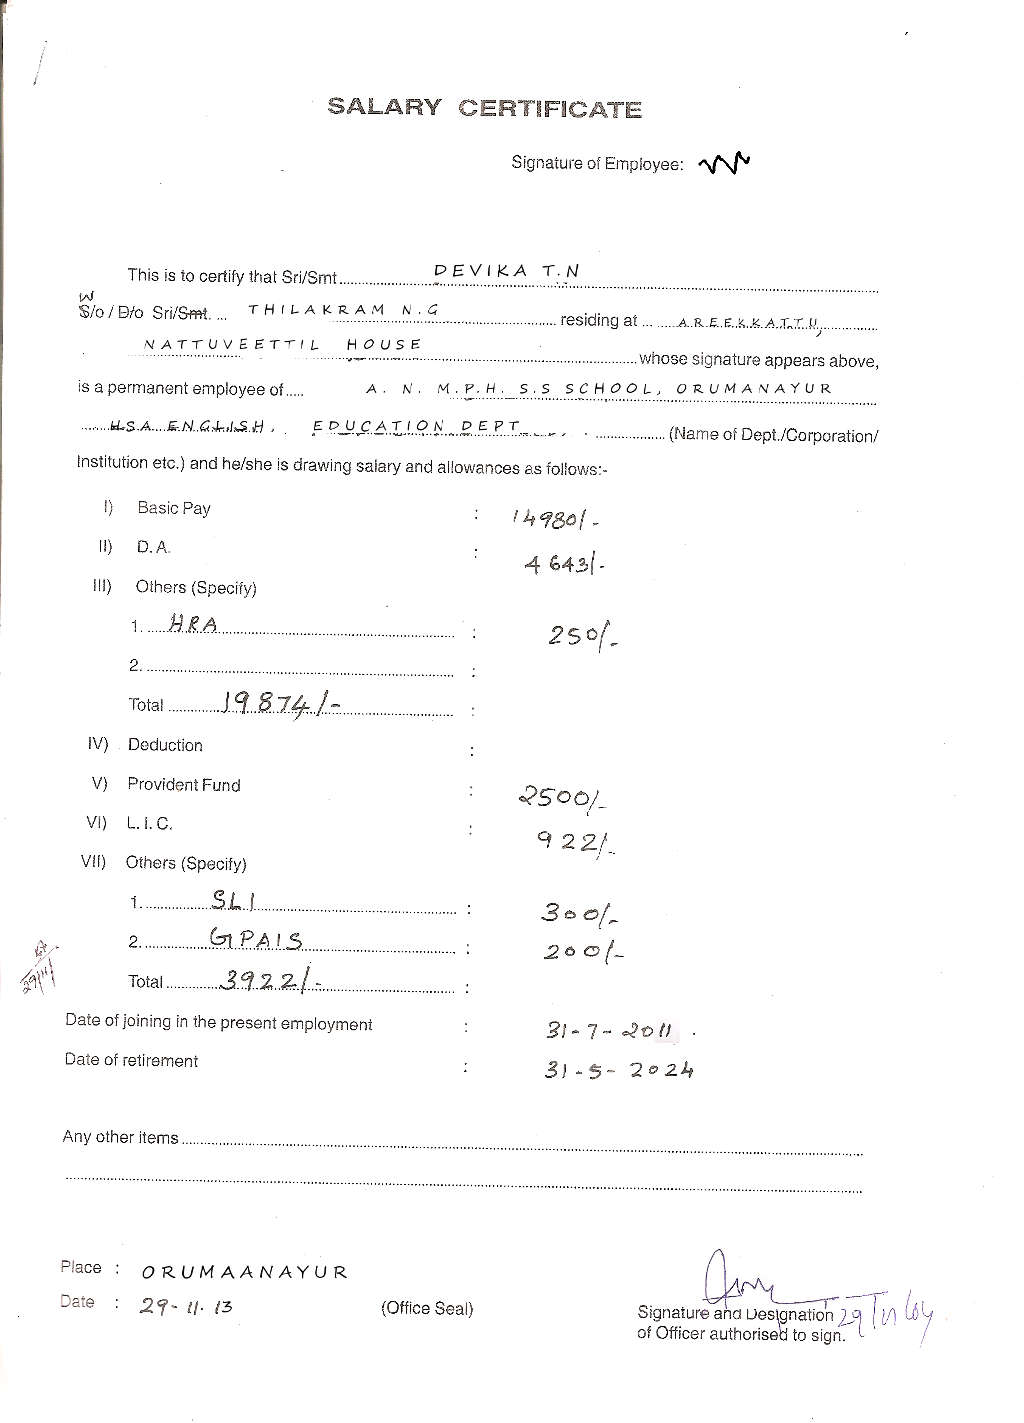 SALARY CERTIFICATE
Signature of Employee:
This is to certify that Sri/Smt. DEVIKA T.N
W
S/o / D/o Sri/Smt. THILAKRAM N.G residing at AREEKKATTU,
NATTUVEETTIL HOUSE whose signature appears above,
is a permanent employee of A. N. M.P.H. S.S SCHOOL, ORUMANAYUR
H.S.A ENGLISH, EDUCATION DEPT. (Name of Dept./Corporation/
Institution etc.) and he/she is drawing salary and allowances as follows:-
I) Basic Pay : 14980/-
II) D.A. : 4643/-
III) Others (Specify)
1. HRA : 250/-
2. :
Total 19874/- :
IV) Deduction :
V) Provident Fund : 2500/-
VI) L.I.C. : 922/-
VII) Others (Specify)
1. SLI : 300/-
2. GPAIS : 200/-
Total 3922/- :
Date of joining in the present employment : 31-7-2011
Date of retirement : 31-5-2024
Any other items
Place : ORUMAANAYUR
Date : 29-11-13 (Office Seal)
Signature and Designation
of Officer authorised to sign.